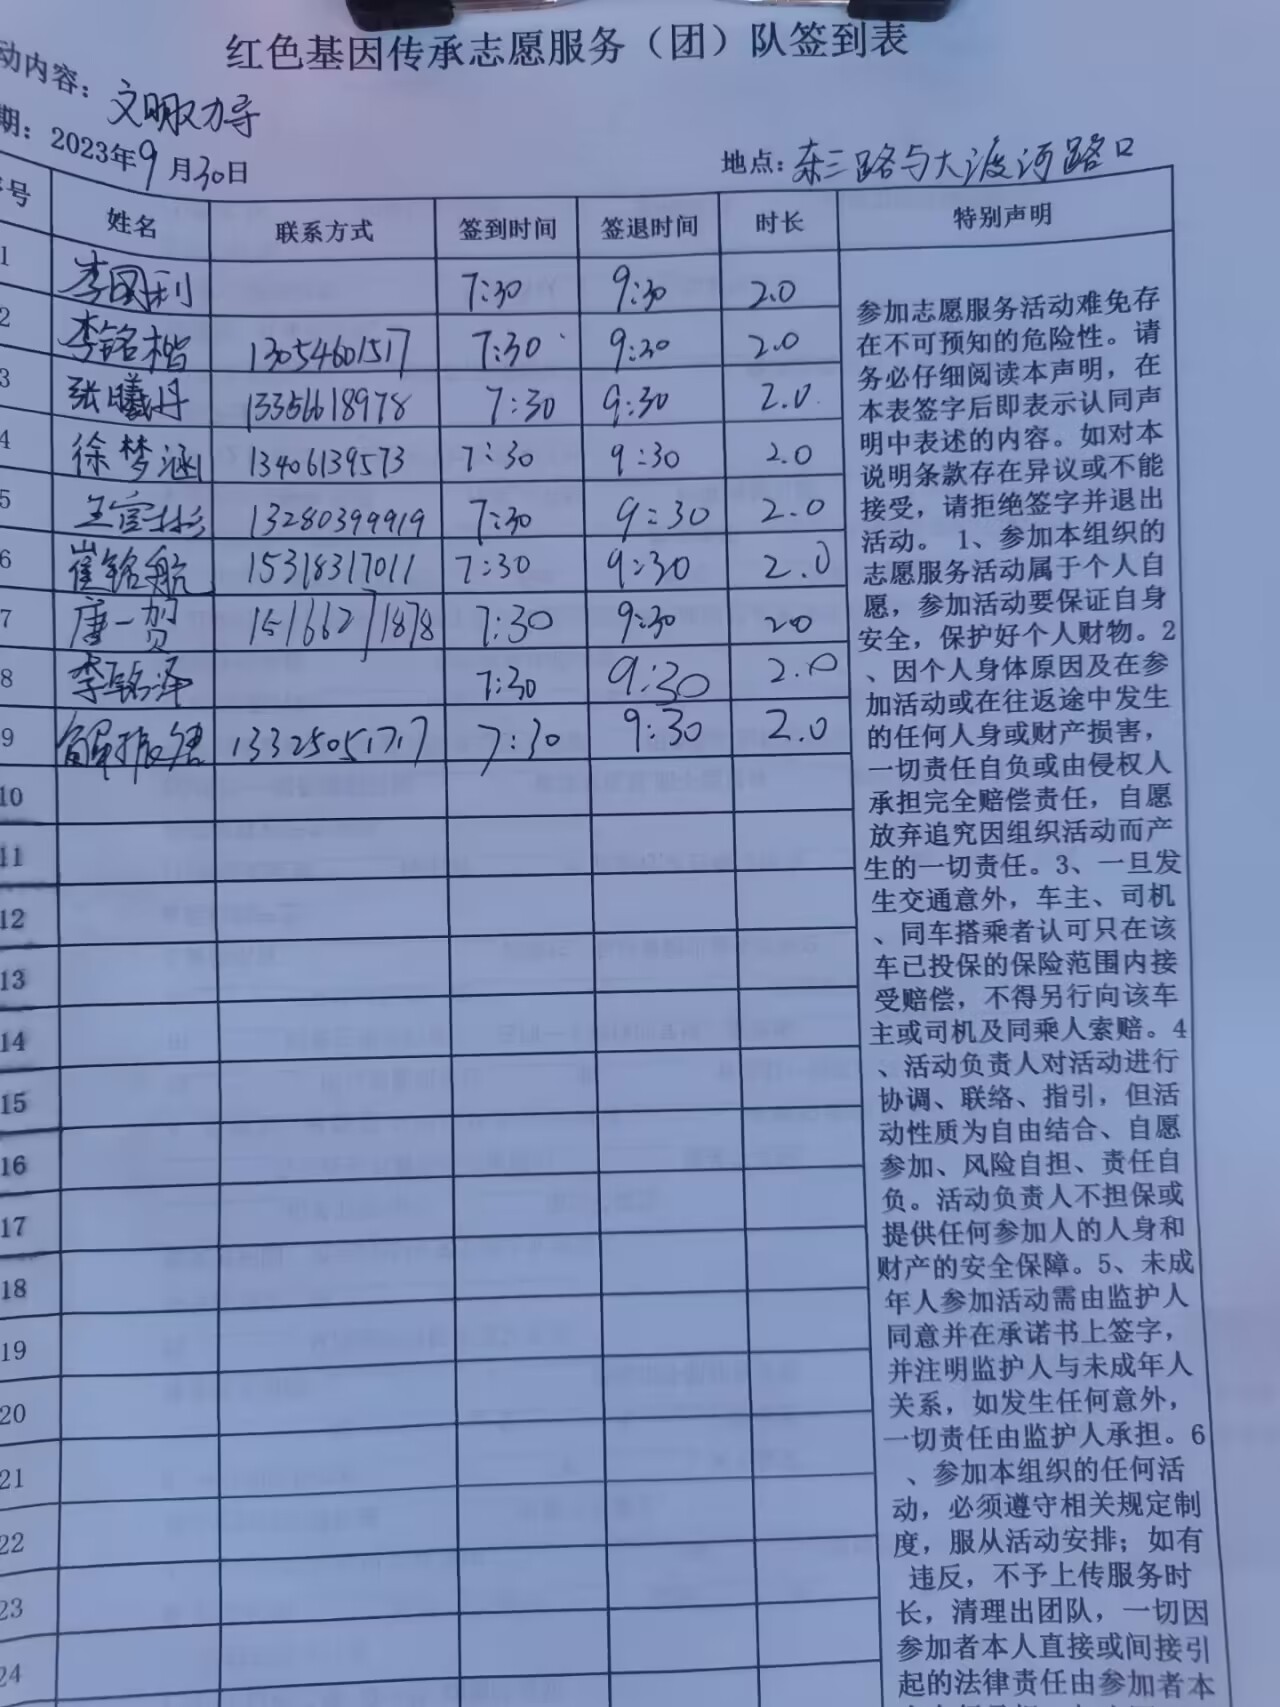 红色基因传承志愿服务（团）队签到表
动内容：文明劝导
期：2023年9月30日
地点：东三路与大渡河路口
序号 姓名 联系方式 签到时间 签退时间 时长 特别声明
1 李国利 7:30 9:30 2.0
2 李铭楷 13054601517 7:30 9:30 2.0
3 张曦丹 13356618978 7:30 9:30 2.0
4 徐梦涵 13406139573 7:30 9:30 2.0
5 13280399919 7:30 9:30 2.0
6 崔铭航 15318317011 7:30 9:30 2.0
7 唐一贺 15166271878 7:30 9:30 2.0
8 李铭泽 7:30 9:30 2.0
9 解振 13325051717 7:30 9:30 2.0
10
11
12
13
14
15
16
17
18
19
20
21
22
23
24
参加志愿服务活动难免存
在不可预知的危险性。请
务必仔细阅读本声明，在
本表签字后即表示认同声
明中表述的内容。如对本
说明条款存在异议或不能
接受，请拒绝签字并退出
活动。 1、参加本组织的
志愿服务活动属于个人自
愿，参加活动要保证自身
安全，保护好个人财物。2
、因个人身体原因及在参
加活动或在往返途中发生
的任何人身或财产损害，
一切责任自负或由侵权人
承担完全赔偿责任，自愿
放弃追究因组织活动而产
生的一切责任。3、一旦发
生交通意外，车主、司机
、同车搭乘者认可只在该
车已投保的保险范围内接
受赔偿，不得另行向该车
主或司机及同乘人索赔。4
、活动负责人对活动进行
协调、联络、指引，但活
动性质为自由结合、自愿
参加、风险自担、责任自
负。活动负责人不担保或
提供任何参加人的人身和
财产的安全保障。5、未成
年人参加活动需由监护人
同意并在承诺书上签字，
并注明监护人与未成年人
关系，如发生任何意外，
一切责任由监护人承担。6
、参加本组织的任何活
动，必须遵守相关规定制
度，服从活动安排；如有
违反，不予上传服务时
长，清理出团队，一切因
参加者本人直接或间接引
起的法律责任由参加者本